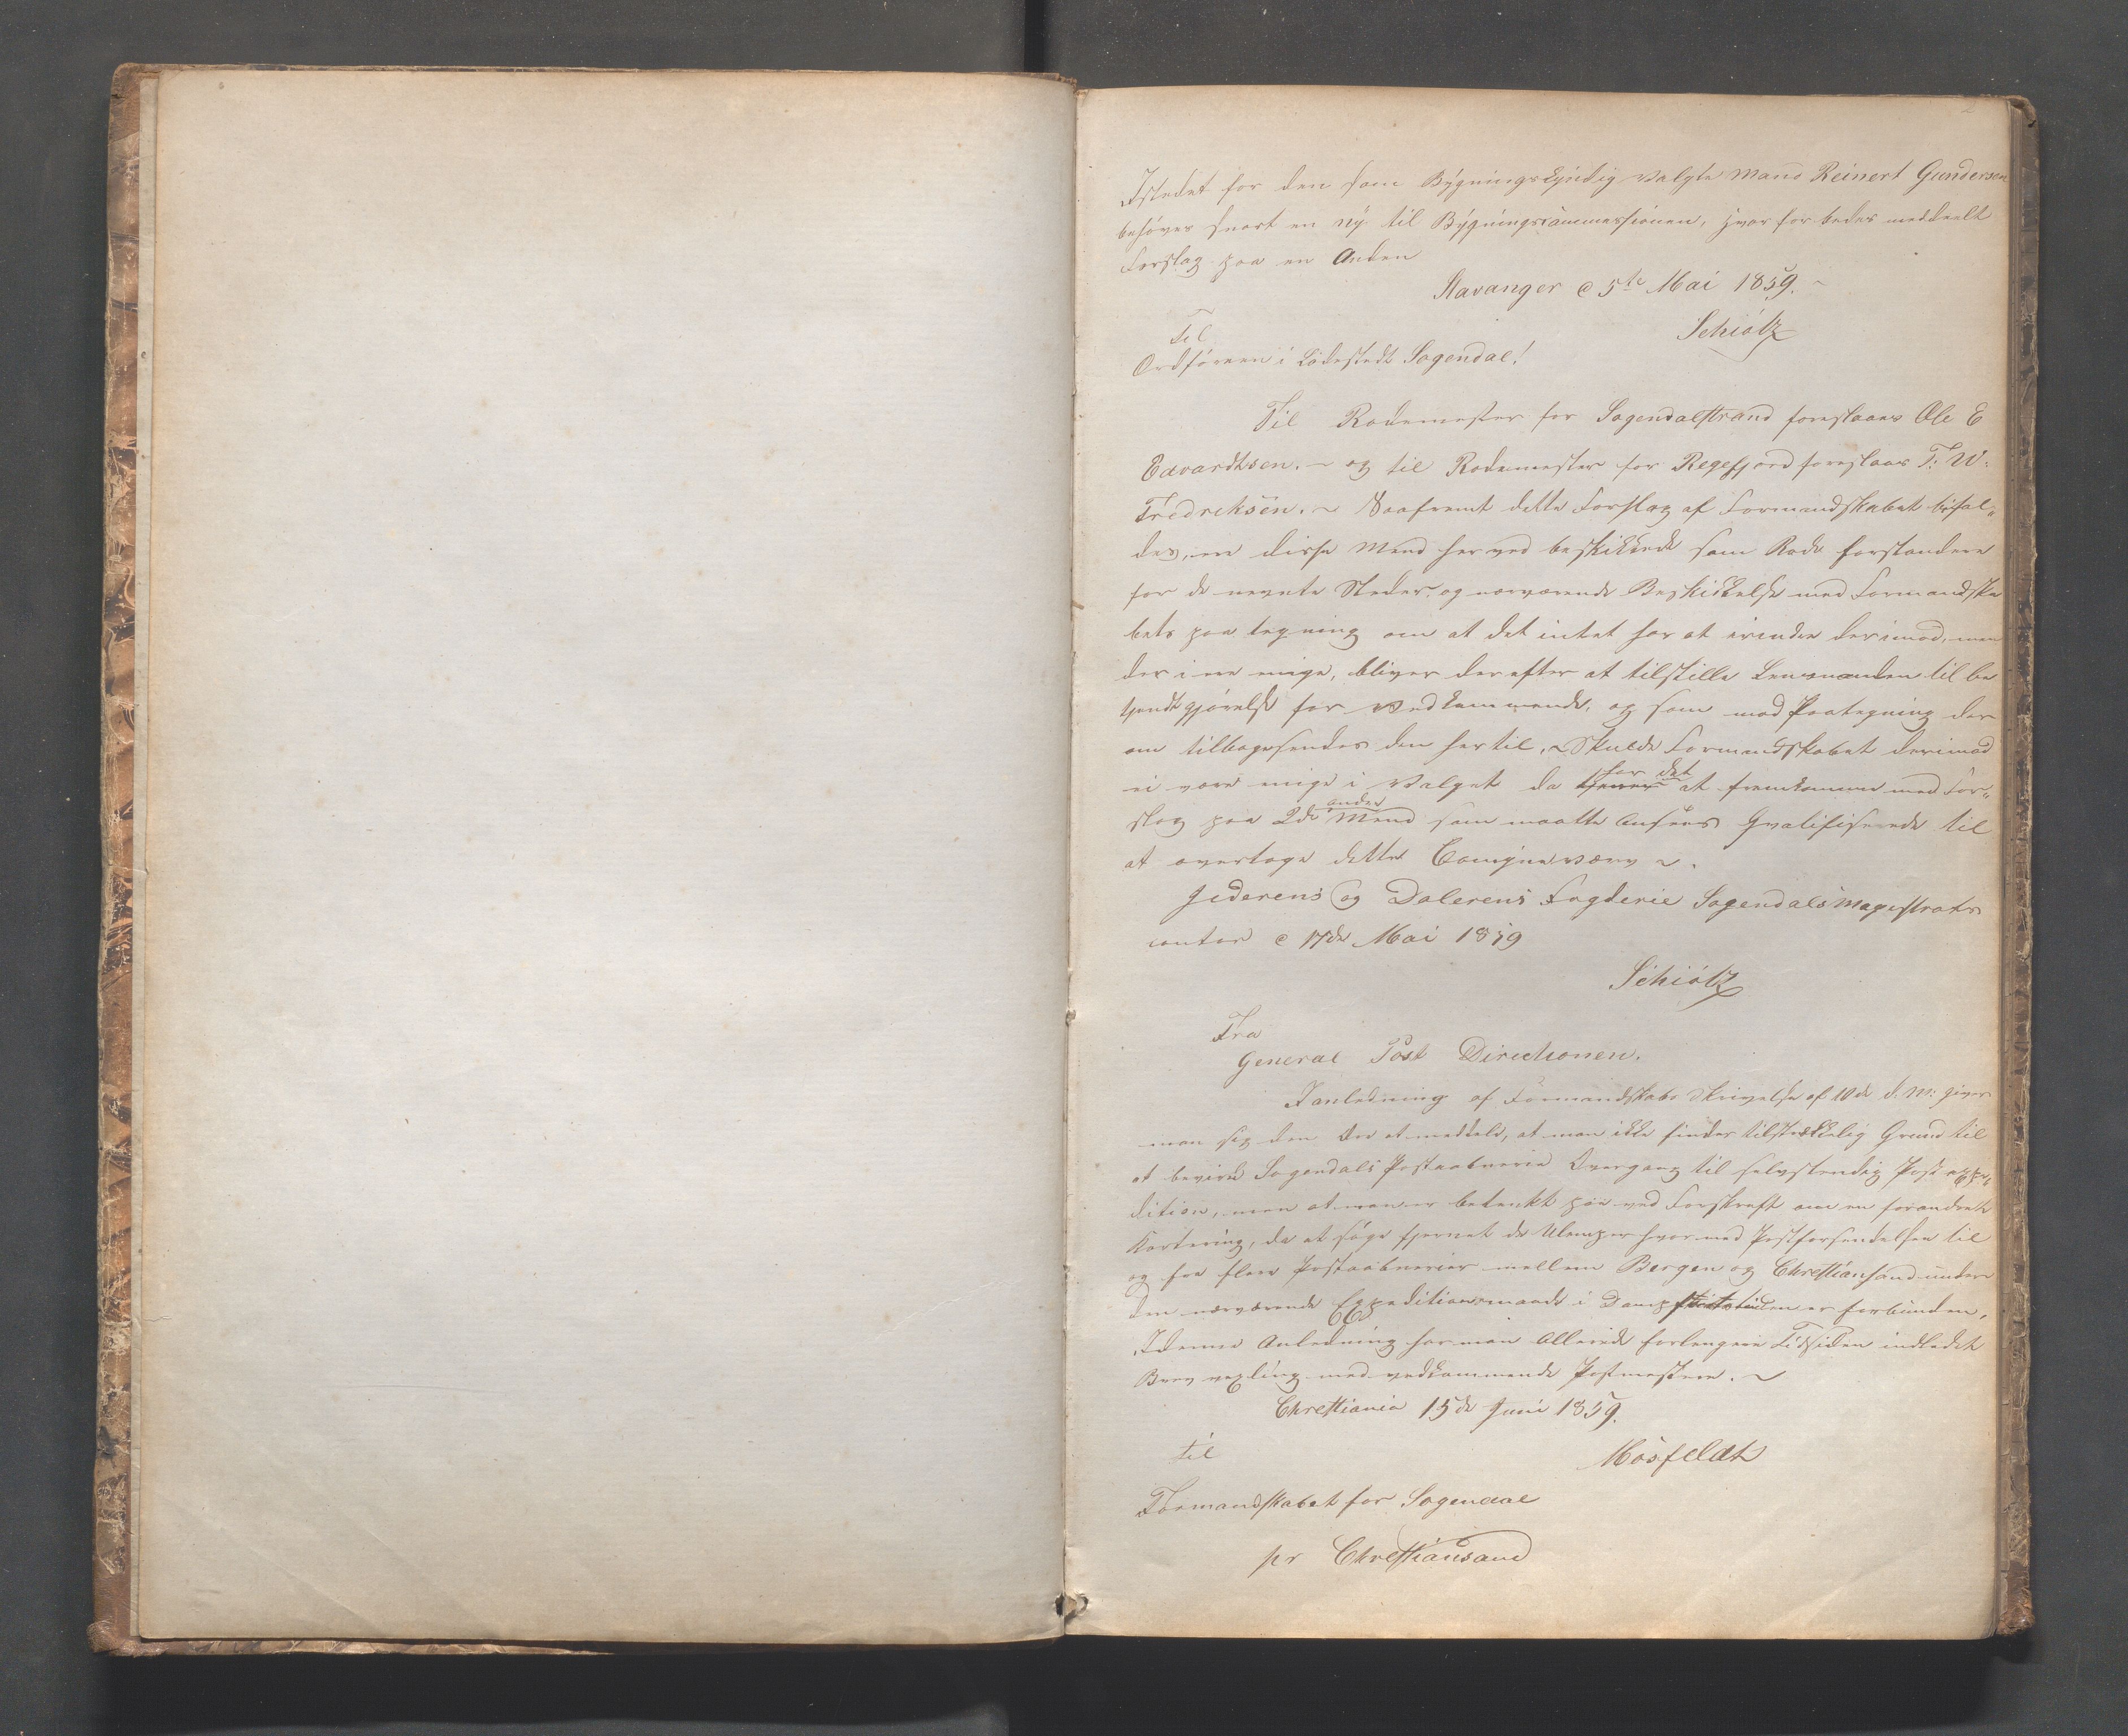 2
Istedet for den som Bygningskyndig valgte Mand Reinert Gundersen
behøves snart en ny til Bygningscommissionen, hvorfor bedes meddeelt
Forslag paa en Anden
Stavanger d 5te Mai 1859.
Schiötz
Til
Ordføreren i Ladestedt Sogendal!
Til Rodemester for Sogendalstrand foreslaaes Ole E
Edvardtsen. ~ og til Rodemester for Regefjord foreslaaes T: W:
Fredreksen. ~ Saafremt dette Forslag af Formandskabet bifal„
des, ere disse Mend herved beskikkede som Rode forstandere
for de nevnte Steder og nærværende Beskikkelse med Formandska
bets paa tegning om at det intet har at erindre derimod, men
deri ere enige, bliver derefter at tilstille Lensmanden til be
kjendtgjørelse for Vedkommende, og som med Paategning der
om tilbagesendes den hertil. ~ Skulde Formandskabet derimod
ei være enige i Valget da har det at fremkomme med For„
slag paa 2de andre Mend som maatte Ansees Qvalifiserede til
at overtage dette Comyneværv ~.
Jederens og Dalerens Fogderie Sogendals Magistrats
contor d 17de Mai 1859
Schiötz
Fra
General Post Directionen.
I anledning af Formandskabs Skrivelse af 10de d. M: giver
man sig den Ære at meddele, at man ikke finder tilstrekkelig Grund til
at bevirke Sogendals Postaabneries Overgang til selvstendig Post expe„
dition, men at man er betenkt paa ved Forskreft om en forandret
Kartering, da at søge fjernet de Ulemper hvormed Postforsendelsen til
og fra flere Postaabnerier mellem Bergen og Chrestiansand under
den nærværende Expeditionsmaade i Dampskibstiden er forbunden,
I denne Anledning har man Allerede forlengere Tid siden indledet
Brevvexling med vedkommende Postmestere. ~
Chrestiania 15de Juni 1859.
Mosfeldt
til
Formandskabet for Sogendal
pr Chrestiansand